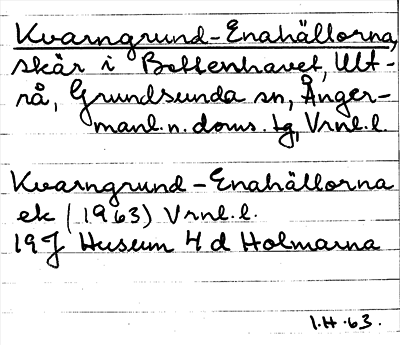 Kvarngrund-Enahällorna,
skär i Bottenhavet, Ult-
rå, Grundsunda sn, Ånger-
manl. n. doms. tg, Vrnl. l.
Kvarngrund-Enahällorna
ek (1963) Vrnl. l.
19J Husum 4d Holmarna
I.H.63.